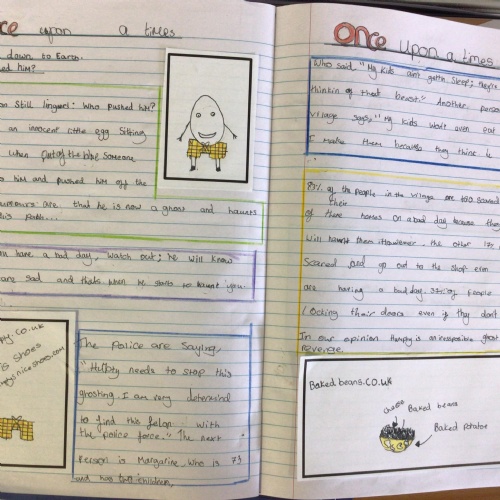 ce upon a times
down to Earth.
ed him?
on still lingers: Who pushed him?
an innocent little egg sitting
when out of the blue someone
him and pushed him off the
rumours are that he is now a ghost and haunts
his path...
u have a bad day, watch out; he will know
are sad and thats when he starts to haunt you.
py.co.uk
is shoes
mptysniceshoes.com
The police are saying,
"Humpty needs to stop this
ghosting. I am very determind
to find this felon with
the police force." The next
Person is Margarine, who is 73
and has two children,
once upon a times
Who said "My kids aint gettn sleep; they're
thinkin of that beast." Another person
village says, "My kids won't even eat
I make them because they think
87% of the people in the village are too scared
their
of there homes on a bad day because they
will haunt them. However the other 13%
scared and go out to the shop even
are having a bad day. 37% of people
locking their doors even if they dont
In our opinion Humpty is an irresponsible ghost
revenge.
Baked beans.co.uk
cheese
Baked beans
Baked potatoe